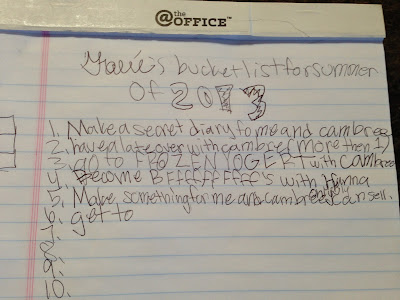 @the OFFICE™
bucket list for summer
Of 2013
1. Make a secret diary to me and cambree
2. have a lateover with cambre (more then 1)
3. go to FROZEN YOGERT with Cambree
4. Become Bffffffffff's with Hanna
5. Make something for me and cambree can sell.
6. get to
7.
8.
9.
10.